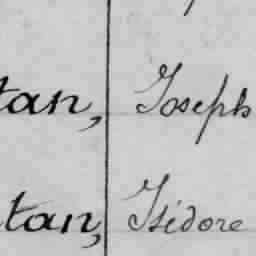 tan, Joseph
tan, Isidore